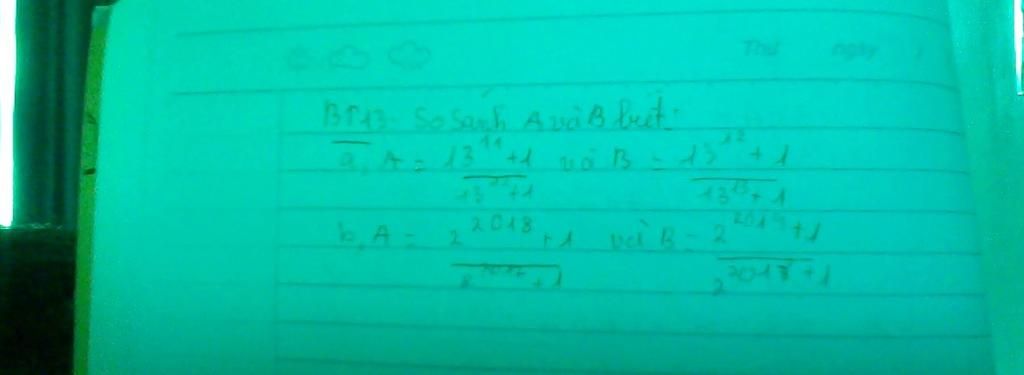 Thứ ngày /
BT13: So sánh A và B biết:
a, A = 13^11 + 1 / 13^12 + 1 và B = 13^12 + 1 / 13^13 + 1
b, A = 2^2018 + 1 / 2^2017 + 1 và B = 2^2019 + 1 / 2^2018 + 1